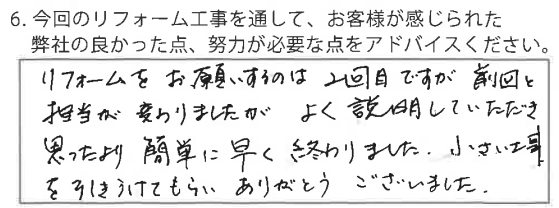 6. 今回のリフォーム工事を通して、お客様が感じられた
弊社の良かった点、努力が必要な点をアドバイスください。
リフォームをお願いするのは2回目ですが前回と
担当が変わりましたがよく説明していただき
思ったより簡単に早く終わりました.小さい工事
を引きうけてもらいありがとうございました.